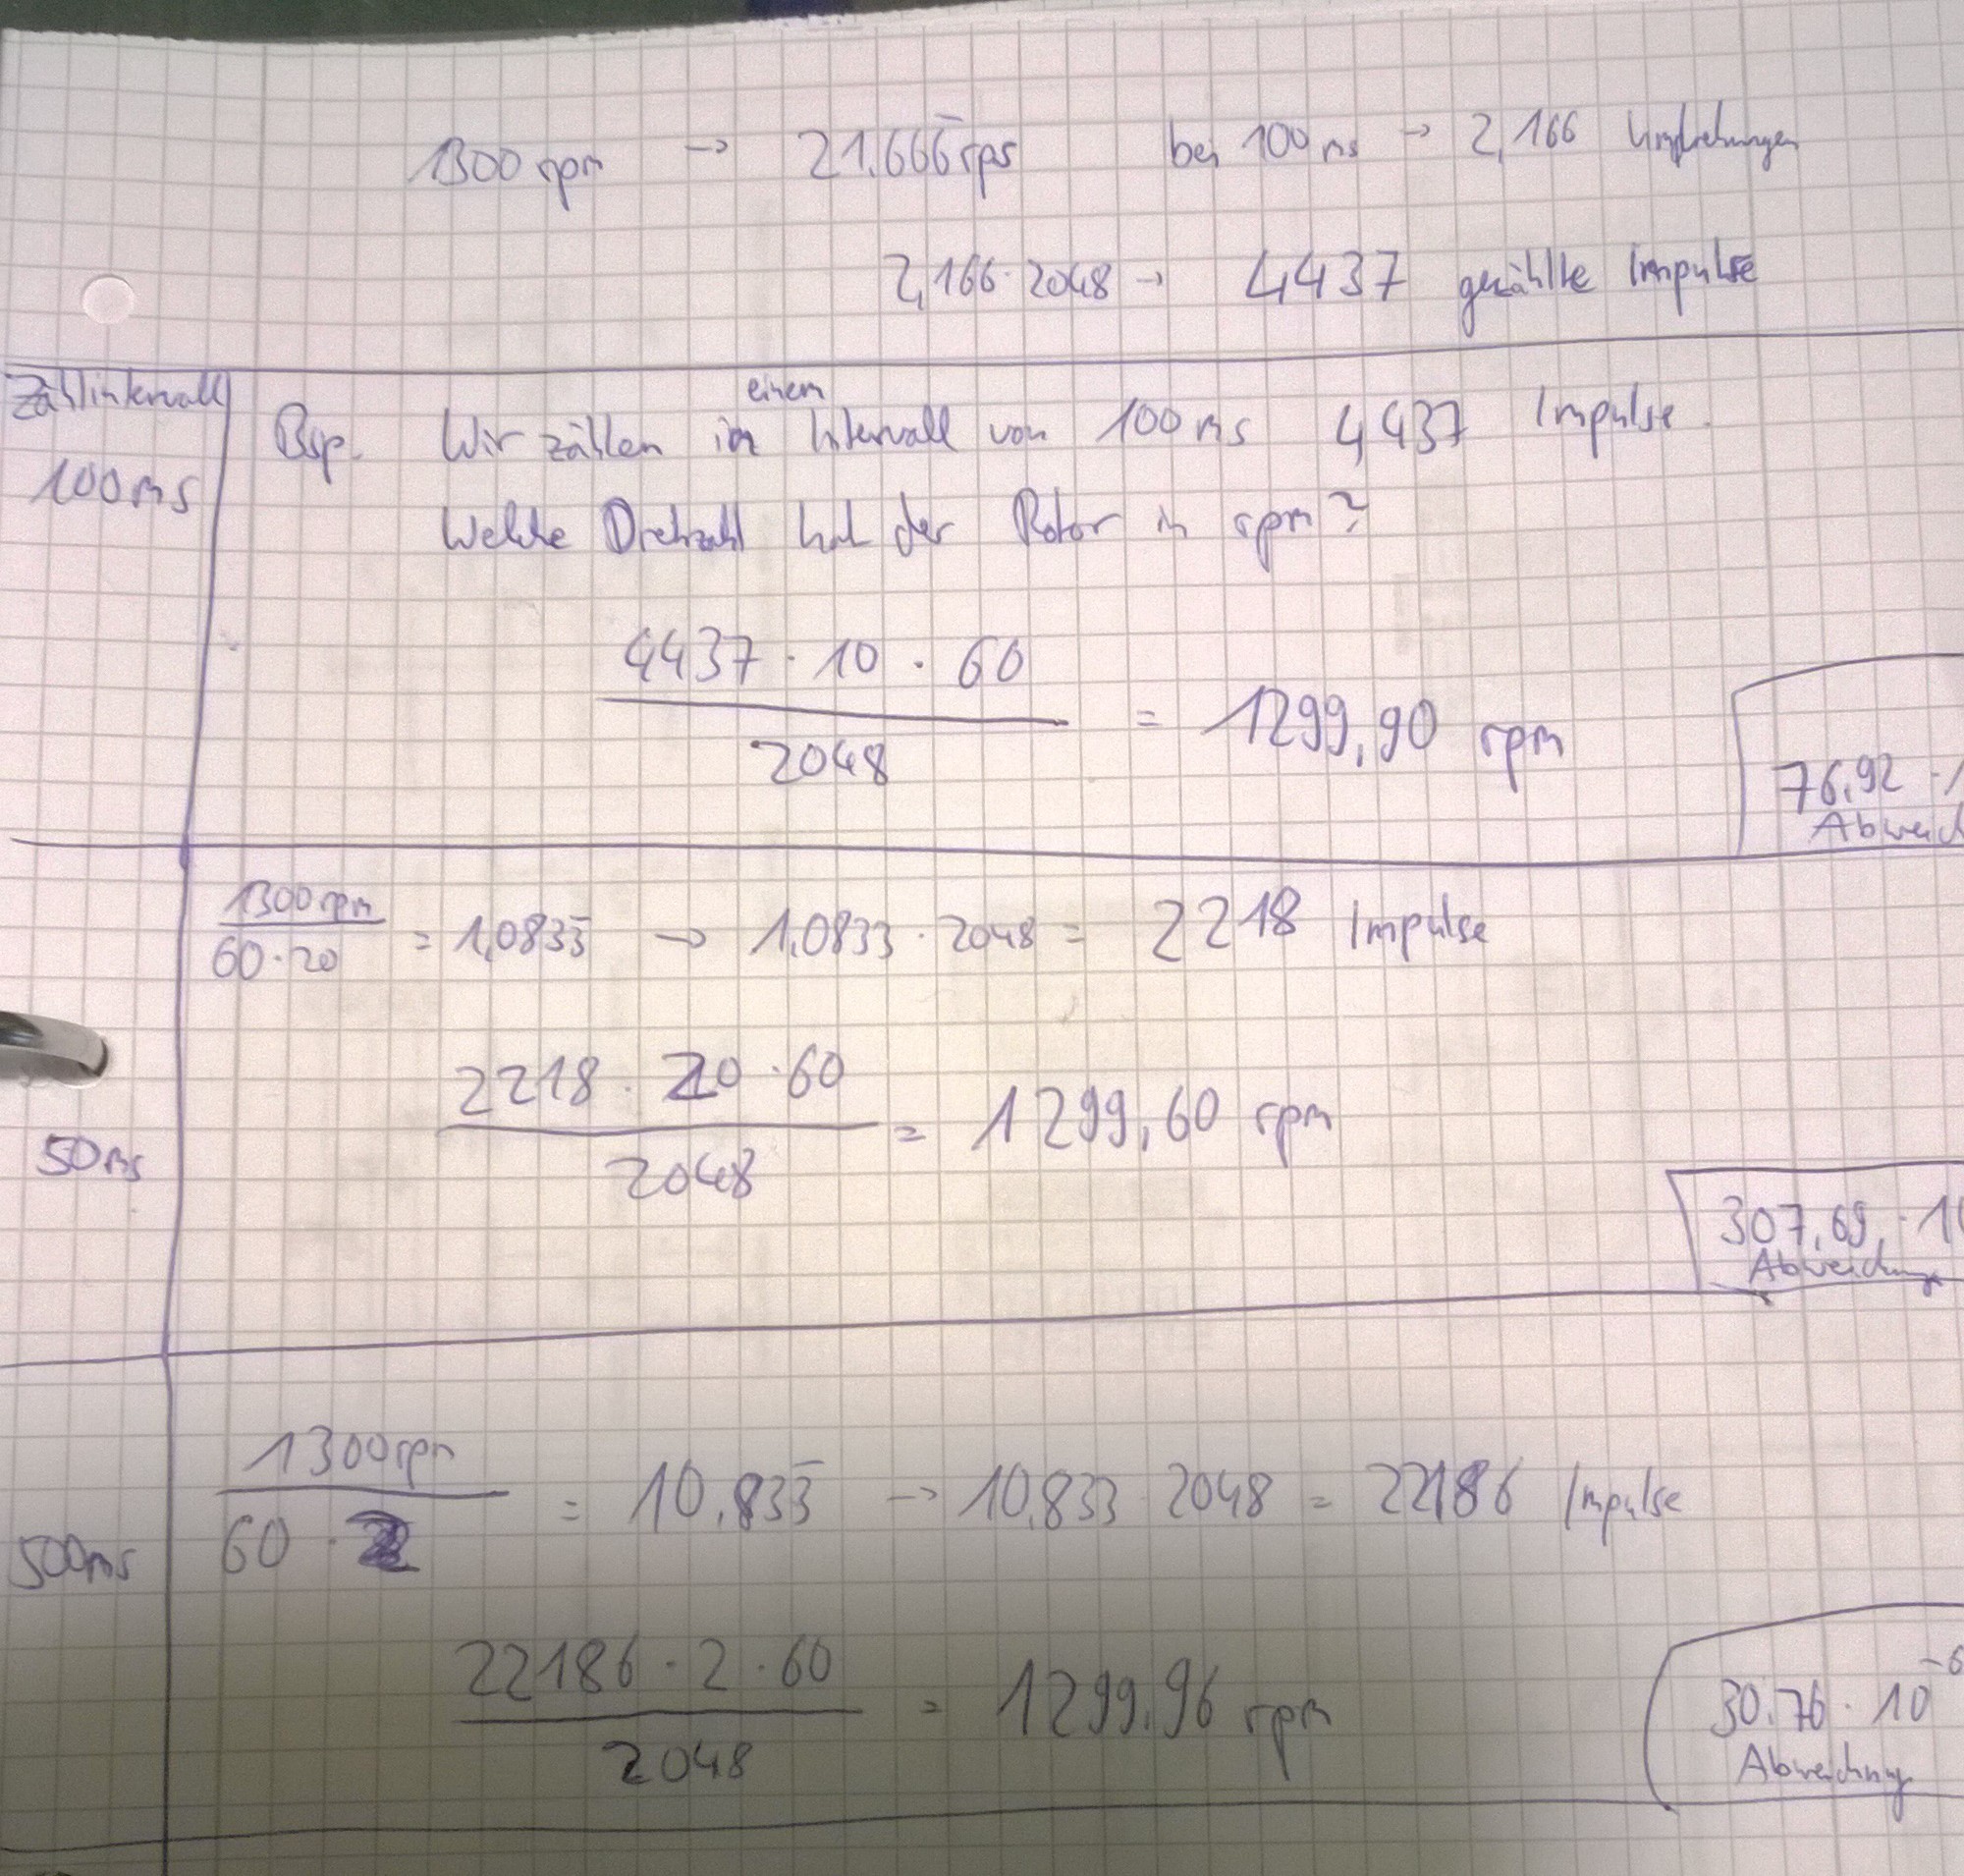 1300 rpm → 21,666̅ rps bei 100 ms → 2,166 Umdrehungen
2,166 · 2048 → 4437 gezählte Impulse
Zählintervall
100ms
Bsp. Wir zählen in einem Intervall von 100 ms 4437 Impulse.
Welche Drehzahl hat der Rotor in rpm?
4437 · 10 · 60
2048
= 1299,90 rpm
76,92 · 1
Abweich
1300 rpm
60 · 20
= 1,0833̅ → 1,0833 · 2048 = 2218 Impulse
50ms
2218 · 20 · 60
2048
= 1299,60 rpm
307,69 · 10
Abweichung
500ms
1300 rpm
60 · 2
= 10,833̅ → 10,833 · 2048 = 22186 Impulse
22186 · 2 · 60
2048
= 1299,96 rpm
30,76 · 10⁻⁶
Abweichung